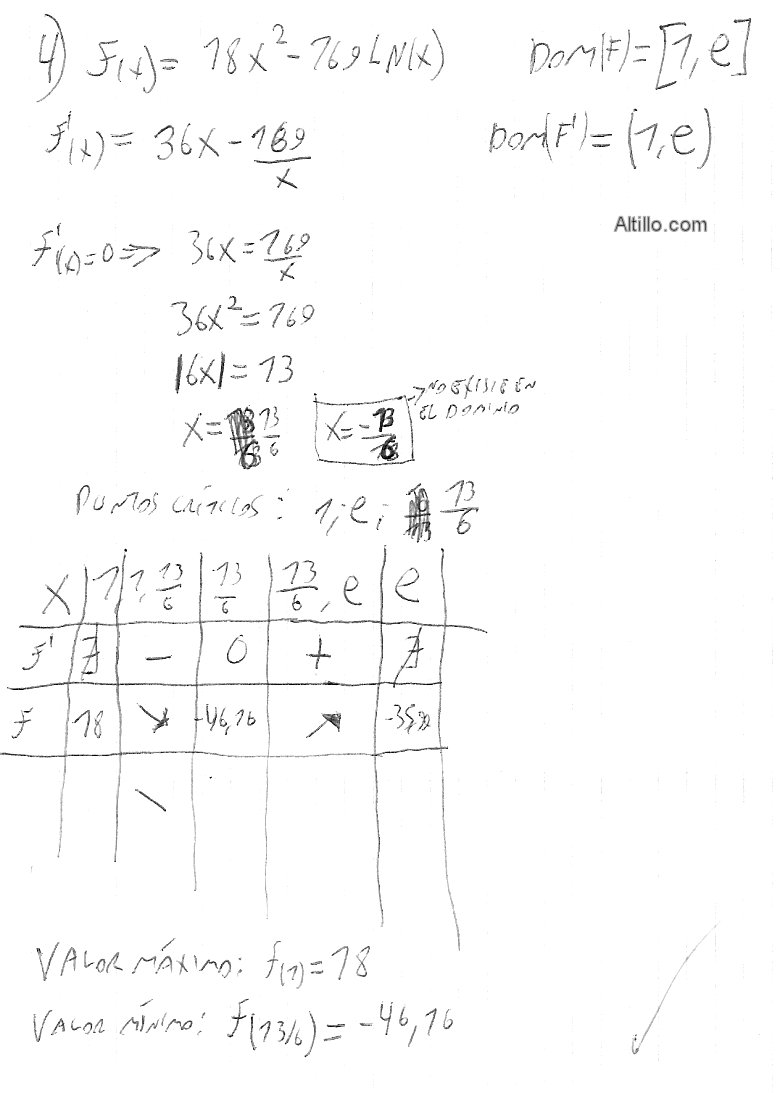 4) F(x) = 18x² - 169 LN(x) DOM(F) = [1, e]
F'(x) = 36x - 169/x DOM(F') = (1, e)
Altillo.com
F'(x)=0 => 36x = 169/x
36x² = 169
|6x| = 13
x = 13/6 x = -13/6 → NO EXISTE EN EL DOMINIO
PUNTOS CRÍTICOS: 1; e; 13/6
x | 1 | 1, 13/6 | 13/6 | 13/6, e | e
F' | ∄ | - | 0 | + | ∄
F | 18 | ↘ | -46,16 | ↗ |
VALOR MÁXIMO: f(1) = 18
VALOR MÍNIMO: F(13/6) = -46,16